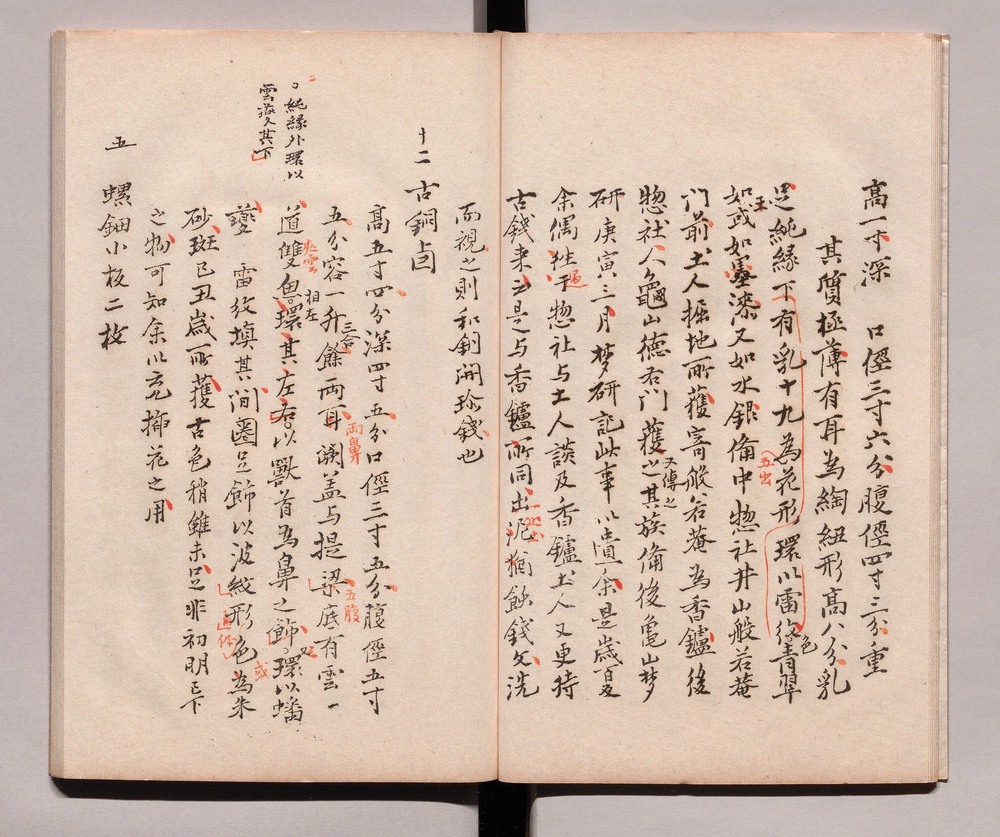 高一寸深 口徑三寸六分腹徑四寸三分重
其質極薄有耳為綯紐形高八分乳
足純緣下有乳十九為花形 環以雷紋青翠
五出
色
如玉或如墨漆又如水銀備中惣社井山般若菴
門前土人掘地所獲寄般若菴為香鑪後
惣社人龜山德右門獲之其族備後亀山夢
又傳之
研庚寅三月梦研記此事以遺余是歲夏
余偶往于惣社与土人談及香鑪土人又更持
過
古錢来云是与香鑪所同出泥猶蝕錢文洗
而視之則和銅開珎錢也
十二 古銅卣
高五寸四分深四寸五分口徑三寸五分腹徑五寸
五分容一升 餘両耳 蓋与提梁底有雲
三合
両鼻
五腹
道雙魚環其左右以獸首為鼻之飾環以蟠
相左
又
夔 雷紋填其間圈足飾以波紋形色為朱
通体
或
砂斑己丑歲所獲古色稍雖未足非初明已下
之物可知余以充揷花之用
純緣外環以
雲 其下
五 螺鈿小板二枚